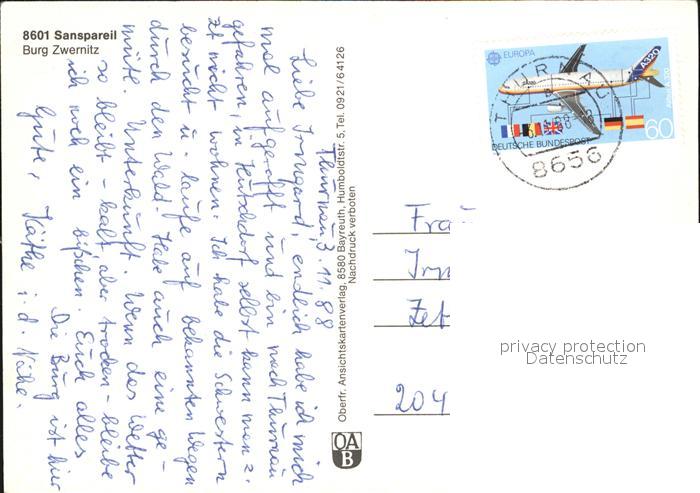 8601 Sanspareil
Burg Zwernitz
Thurnau, 3.11.88
Liebe Irmgard, endlich habe ich mich
mal aufgerafft und bin nach Thurnau
gefahren, in Hutschdorf selbst kann man z.
Zt nicht wohnen. Ich habe die Schwestern
besucht u. laufe auf bekannten Wegen
durch den Wald. Habe auch eine ge-
mütl. Unterkunft. Wenn das Wetter
so bleibt - kalt aber trocken - bleibe
ich noch ein bißchen. Euch alles
Gute, Käthe
Die Burg ist hier
i. d. Nähe.
Oberfr. Ansichtskartenverlag, 8580 Bayreuth, Humboldtstr. 5, Tel. 0921/64126
Nachdruck verboten
OA
B
EUROPA
A320
Airbus A320
60
DEUTSCHE BUNDESPOST
THURNAU
8656
Frau
Irm
Zet
204
privacy protection
Datenschutz